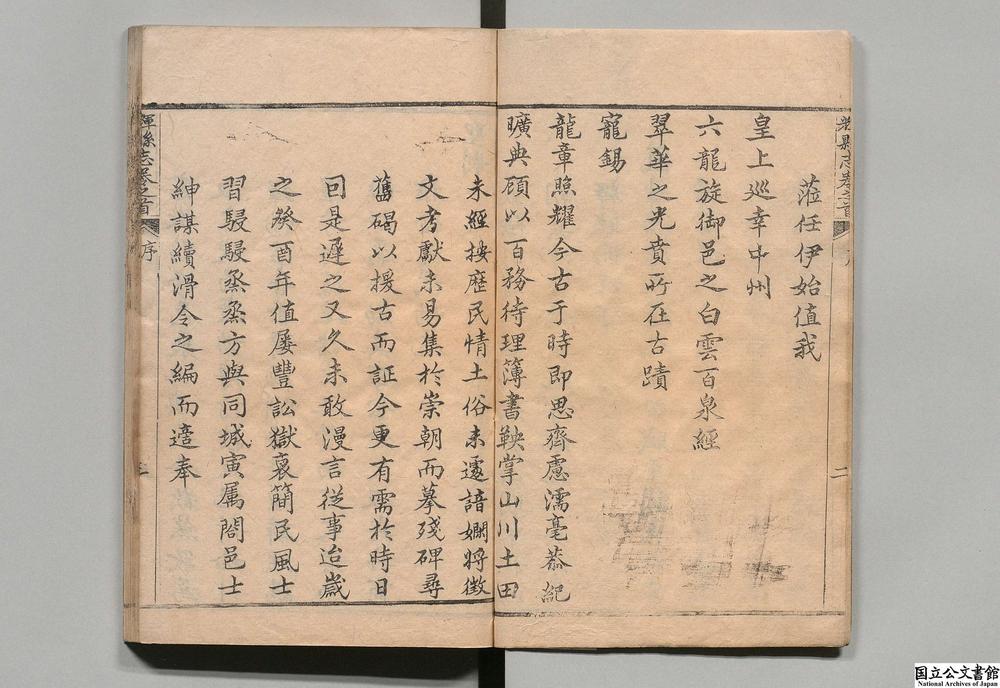 輝縣志卷之首
二
蒞任伊始值我
皇上巡幸中州
六龍旋御邑之白雲百泉經
翠華之光賁所在古蹟
寵錫
龍章照耀今古于時即思齊慮濡毫恭紀
曠典顧以百務待理簿書鞅掌山川土田
未經按歷民情土俗未遽諳嫻將徵
文考獻未易集於崇朝而摹殘碑尋
舊碣以援古而証今更有需於時日
囙是遲之又久未敢漫言從事迨歲
之癸酉年值屢豐訟獄裒簡民風士
習駸駸烝烝方與同城寅属閤邑士
紳謀續滑令之編而適奉
輝縣志卷之首
序
三
国立公文書館
National Archives of Japan